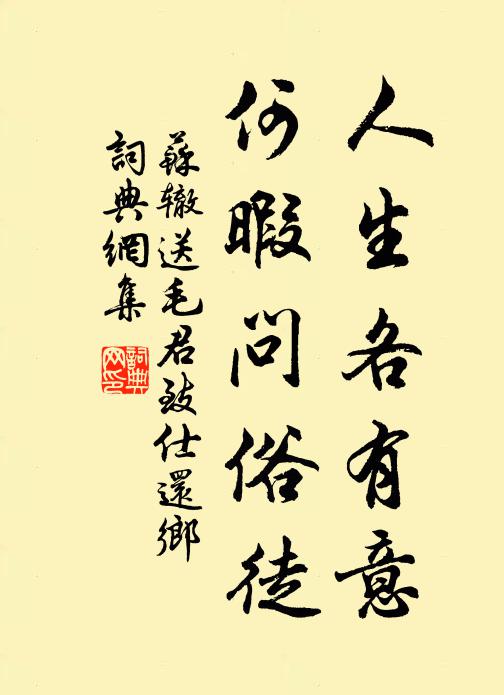 人生各有意
何暇问俗徒
蘇辙送毛君致仕還鄉
詞典網集
詞典网印